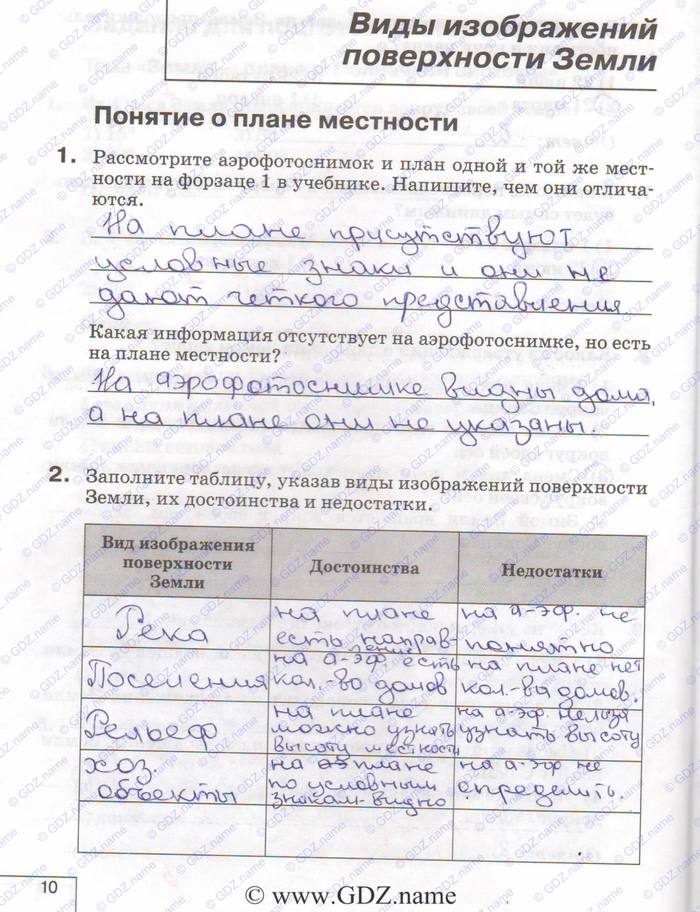 Виды изображений
поверхности Земли
Понятие о плане местности
1. Рассмотрите аэрофотоснимок и план одной и той же мест-
ности на форзаце 1 в учебнике. Напишите, чем они отлича-
ются.
На плане присутствуют
условные знаки и они не
дают четкого представления
Какая информация отсутствует на аэрофотоснимке, но есть
на плане местности?
На аэрофотоснимке видны дома,
а на плане они не указаны.
2. Заполните таблицу, указав виды изображений поверхности
Земли, их достоинства и недостатки.
Вид изображения
поверхности
Земли
Достоинства
Недостатки
Река
на плане
есть направ-
ление
на а-эф. не
понятно
Поселения
на а-эф. есть
кол.-во домов
на плане нет
кол.-вы домов.
Рельеф
на плане
можно узнать
высоту месткости
на а-эф. нельзя
узнать высоту
хоз.
объекты
на плане
по условным
знакам-видно
на а-эф. не
определить.
10
© www.GDZ.name